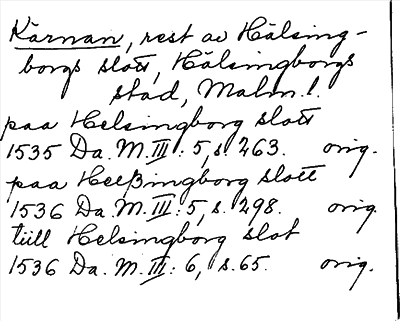 Kärnan, rest av Hälsing-
borgs slott, Hälsingborgs
stad, Malm. l.
paa Helsingborg slott
1535 Da. M. III: 5, s. 263. orig.
paa Helßingborg slott
1536 Da. M. III: 5, s. 298. orig.
tiill Helsingborg slot
1536 Da. M. III: 6, s. 65. orig.